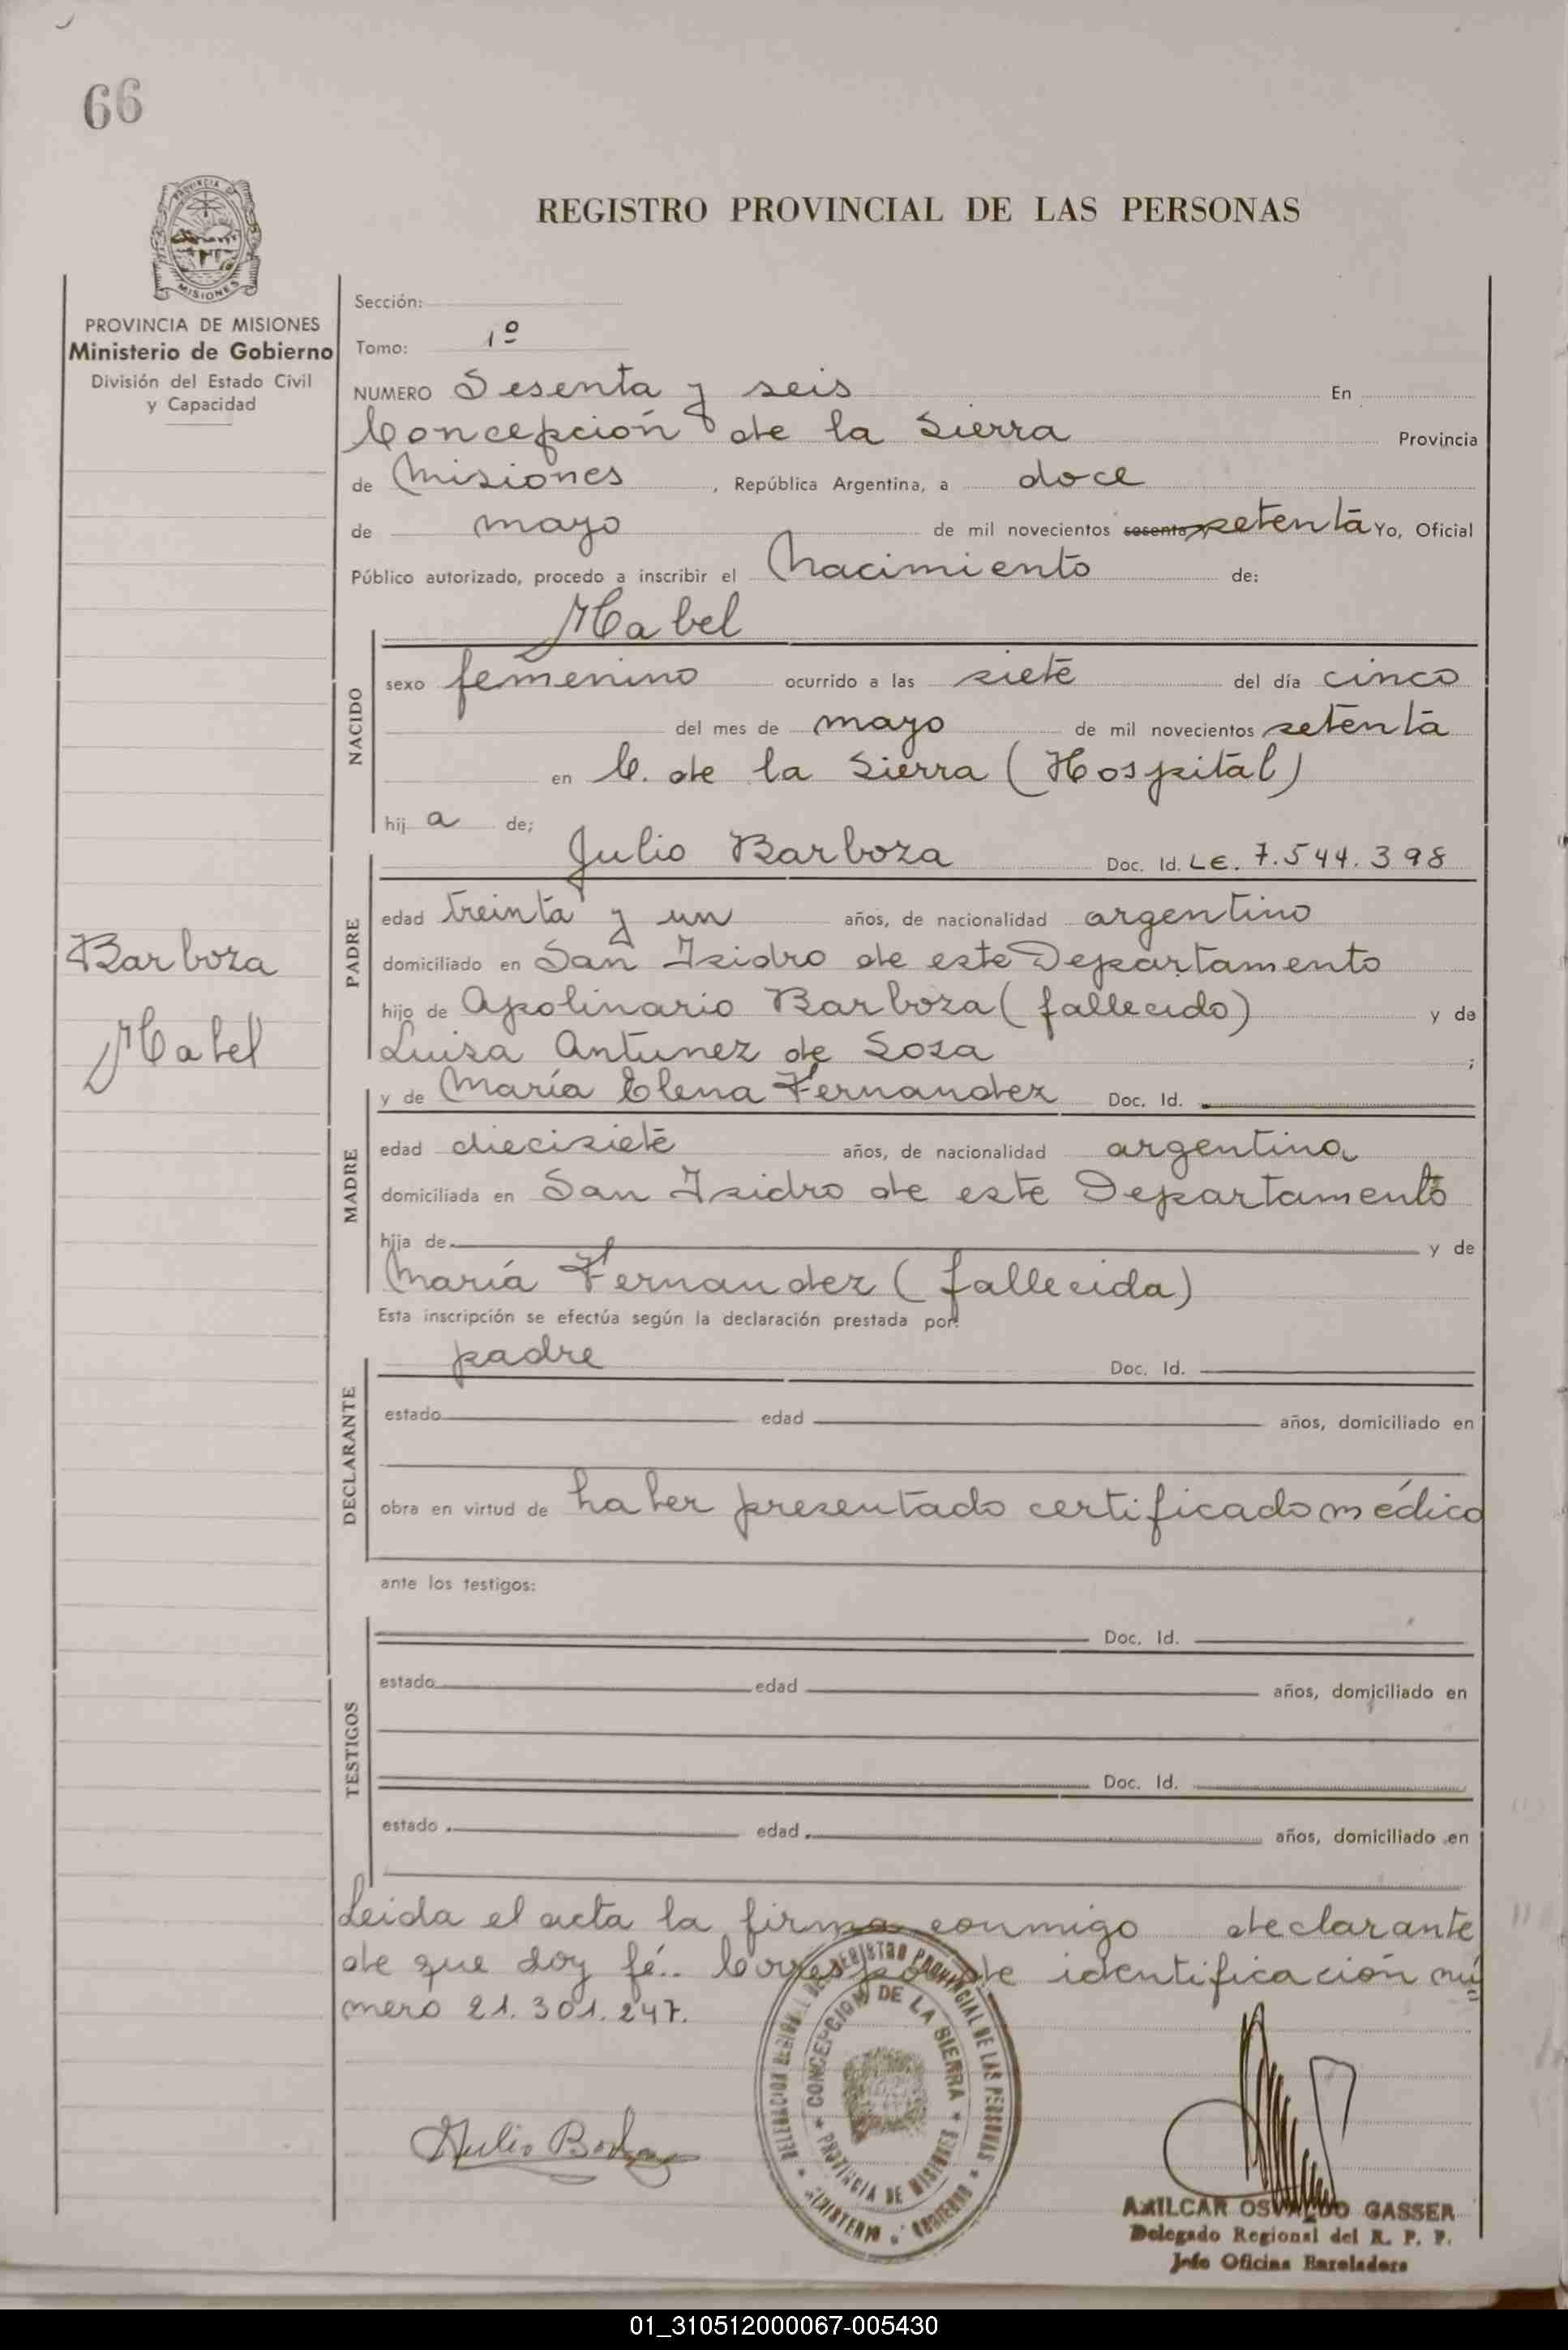 66
PROVINCIA DE
MISIONES
REGISTRO PROVINCIAL DE LAS PERSONAS
PROVINCIA DE MISIONES
Ministerio de Gobierno
División del Estado Civil
y Capacidad
Sección:
Tomo: 1º
NUMERO Sesenta y seis En
Concepción de la Sierra Provincia
de Misiones, República Argentina, a doce
de mayo de mil novecientos sesenta y setenta Yo, Oficial
Público autorizado, procedo a inscribir el Nacimiento de:
Mabel
NACIDO
sexo femenino ocurrido a las siete del día cinco
del mes de mayo de mil novecientos setenta
en C. de la Sierra (Hospital)
hija de;
Julio Barboza Doc. Id. LE. 7.544.398
PADRE
edad treinta y un años, de nacionalidad argentino
domiciliado en San Isidro de este Departamento
hijo de Apolinario Barboza (fallecido) y de
Luisa Antunez de Sosa ;
Barboza
Mabel
y de María Elena Fernandez Doc. Id.
MADRE
edad diecisiete años, de nacionalidad argentina
domiciliada en San Isidro de este Departamento
hija de y de
María Fernandez (fallecida)
Esta inscripción se efectúa según la declaración prestada por:
padre Doc. Id.
DECLARANTE
estado edad años, domiciliado en
obra en virtud de haber presentado certificado médico
ante los testigos:
TESTIGOS
Doc. Id.
estado edad años, domiciliado en
Doc. Id.
estado edad años, domiciliado en
Leida el acta la firma conmigo declarante
de que doy fé.. Corresponde identificación nú
mero 21.301.247.
DELEGACION REGIONAL DEL REGISTRO PROVINCIAL DE LAS PERSONAS
CONCEPCION DE LA SIERRA
PROVINCIA DE MISIONES
MINISTERIO GOBIERNO
Julio Barboza
AMILCAR OSVALDO GASSER
Delegado Regional del R. P. P.
Jefe Oficina Enroladora
01_310512000067-005430